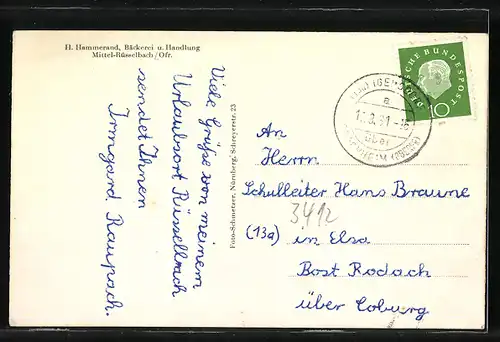 H. Hammerand, Bäckerei u. Handlung
Mittel-Rüsselbach/Ofr.
Viele Grüße von meinem
Urlaubsort Rüsselbach
sendet Ihnen
Irmgard Raupach.
Foto-Schmetzer, Nürnberg, Schreyerstr. 23
DEUTSCHE BUNDESPOST
10
a
über
An
Herrn
Schulleiter Hans Braune
3412
(13a) in Elsa
Post Rodach
über Coburg